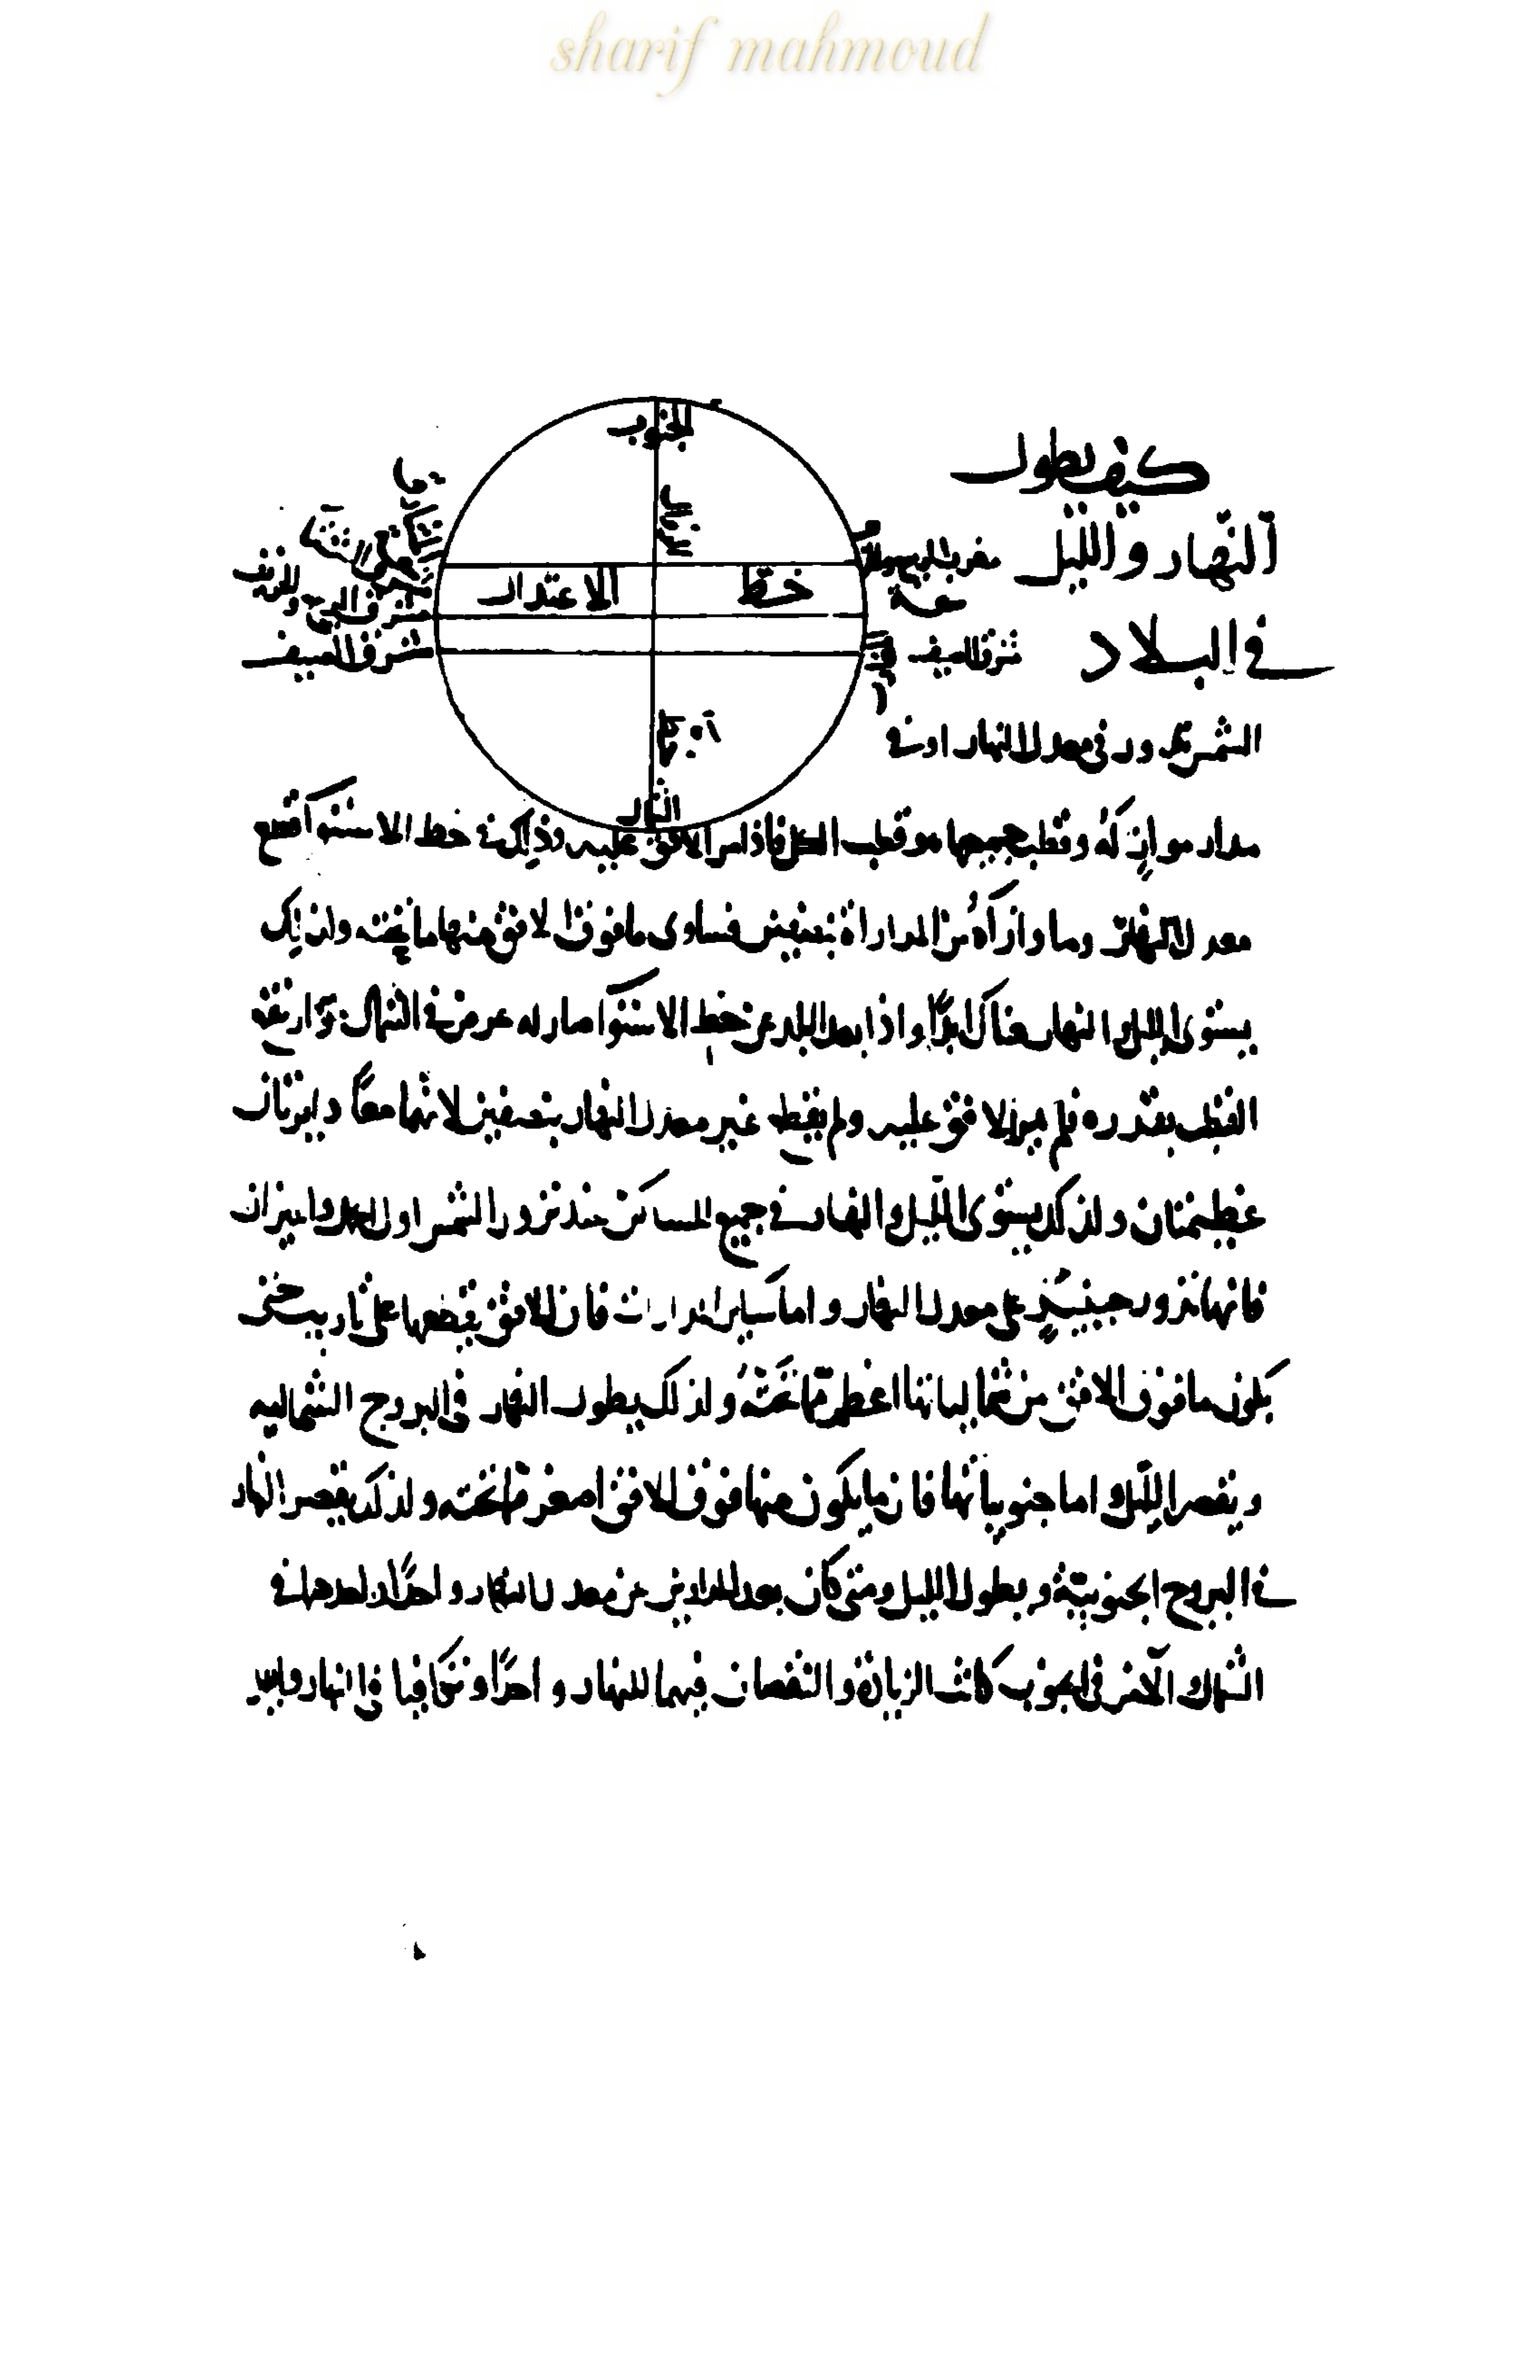 sharif mahmoud
الجنوب
كيف يطول
النهار والليل
خط
الاعتدال
في البلاد
مشرق الصيف
الشمس تدور في معدل النهار او في
مدار مواز له وقطب جميعها هو قطب الكل فاذا مر الافق عليه وذلك في خط الاستوا قطع
معدل النهار وما وازاه من المدارات بنصفين فساوى ما فوق الافق منها ما تحته ولذلك
يستوى الليل والنهار هناك ابدا واذا بعد البلد عن خط الاستوا صار له عرض في الشمال وارتفع
القطب بقدره فلم يمر الافق عليه ولم يقطع غير معدل النهار بنصفين لانهما معا دايرتان
عظيمتان ولذلك يستوى الليل والنهار في جميع المساكن عند نزول الشمس اول الحمل والميزان
فانها تدور حينيذ على معدل النهار واما ساير المدارات فان الافق يقطعها على تاريب حتى
يكون ما فوق الافق من شمالياتها اعظم مما تحته ولذلك يطول النهار في البروج الشماليه
ويقصر الليل واما جنوبياتها فان ما يكون منها فوق الافق اصغر مما تحته ولذلك يقصر النهار
في البروج الجنوبية ويطول الليل ومتى كان بعد المدارين عن معدل النهار واحدا احدهما في
الشمال والآخر في الجنوب كانت الزيادة والنقصان فيهما للنهار واحدا وتكافيا في النهار والليل